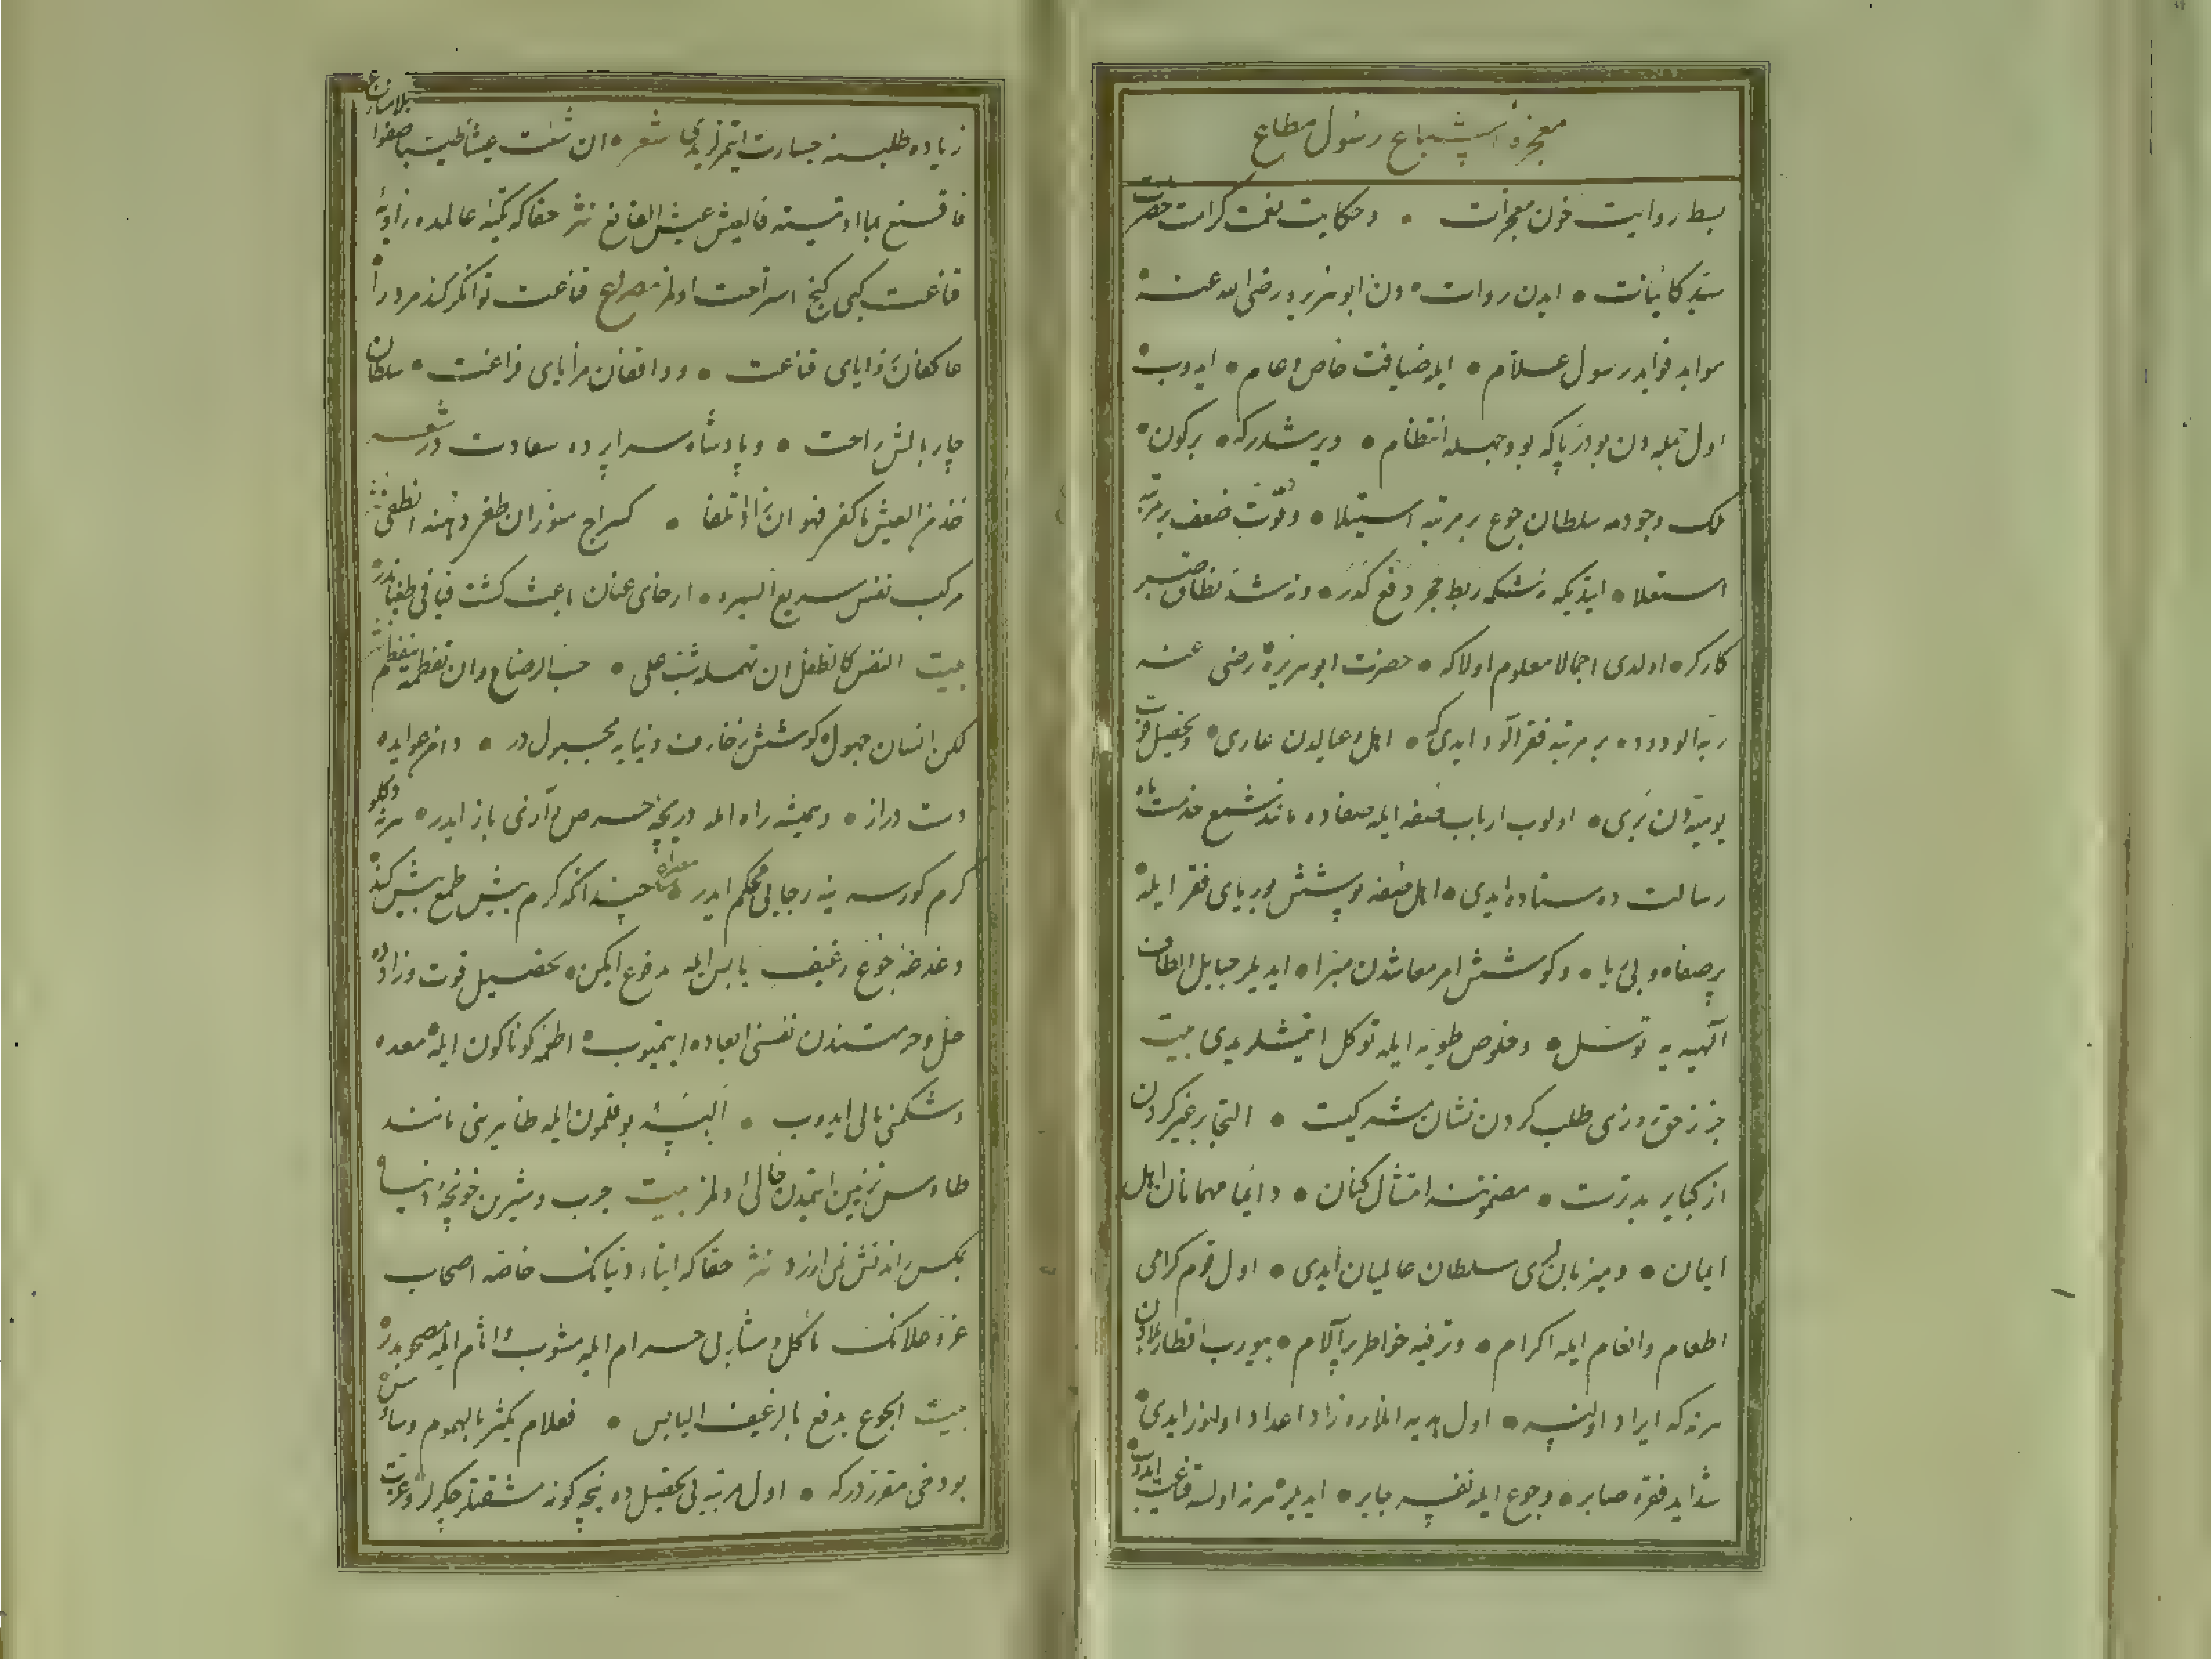 معجزۀ اشباع رسول مطاع
بسط روایت خون معجزات و حکایت نعمت کرامت حضرت
سید کائنات ایدن رواتدن ابو هریره رضی الله عنه
مواید فواید رسول علام ایله ضیافت خاص و عام ایدوب
اول جمله دن بودر یاکه بو وجهله انتظام ویرشدرکه برکون
ملک وجودمه سلطان جوع بر مرتبه استیلا وقوت ضعف بر مرتبه
استعلا ایتدیکه نه شکمه ربط حجر دفع کدر ونه شد نطاق صبر
کارکر اولدی اجمالا معلوم اولاکه حضرت ابو هریره رضی عنه
ربه الودود بر مرتبه فقر آلود ایدی که اهل و عیالدن عاری وتحصیل قوت
یومیه دن بری اولوب ارباب صفه ایله صفاده مانند شمع خدمت
رسالت ده ستاده ایدی اهل صفه پوشش بوریای فقر ایله
پر صفا و بی ریا وکوشش امر معاشدن مبرا ایدیلر حبایل الطاف
الهیه یه توسل وخلوص طویه ایله توکل ایتمشلریدی بیت
جز زحق روزی طلب کردن نشان مشرکیت التجا بر غیر کردن
از کبایر بدترست مضموننه امتثال کنان دائما مهمانان اهل
ایمان ومیزبانلری سلطان عالمیان ایدی اول قوم کرامی
اطعام وانعام ایله اکرام وترفیه خواطر پر آلام بیورب اقطار بلاددن
هرنه که ایراد اولنسه اول هدیه انلاره زاد اعداد اولنور ایدی
شداید فقره صابر وجوع ایله نفسه جابر ایدیلر هرنه اولسه قناعت ایدوب
زیاده طلبنه جسارت ایتمزلریدی شعر ان شئت عیشا طیبا صفوا بلا منازع
فاقنع بما اوتیته فالعیش عیش القانع نثر حقاکه تکیه عالمده زاویۀ
قناعت کبی کنج استراحت اولمز مصراع قناعت توانکر کند مرد را
عاکفان زوایای قناعت وواقفان مزایای فراغت سلطان
چار بالش راحت و پادشاه سراپرده سعادت در شعر
خذ من العیش ما کفی فهو ان زاد اتلفا کسراج منور ان طفی دهنه انطفی
مرکب نفس سریع السیره ارخای عنان باعث کشت فیافی طغیاندر
بیت النفس کالطفل ان تهمله شب علی حب الرضاع وان تفطمه ینفطم
لکن انسان جهول کوشش زخارف دنیایه مجبول در
دست دراز وهمیشه راه امله دریچه حرص و آزنی باز ایدر هرنه دکلو
کرم کورسه ینه رجایی محکم ایدر مصراع چندانکه کرم بیش طمع بیش کند
وغدغۀ جوع رغیف یابس ایله مدفوع ایکن تحصیل قوت وزادده
حل وحرمتندن نفسنی ابعاد ایتمیوب اطعمۀ کوناکون ایله معده
وشکمنی مالی ایدوب البسۀ بوقلمون ایله ظاهرینی مانند
طاوس تزیین ایتمدن خالی اولمز بیت چرب وشیرین خوانچۀ دنیا
بمکس راندنش نمی ارزد نثر حقاکه ابناء دنیانک خاصه اصحاب
عز وعلانک مأکل ومشاربی حرام ایله مشوب و اثام ایله مصحوبدر
بیت الجوع یدفع بالرغیف الیابس فعلام یکثر بالهموم وساوس
بو دخی مقرردرکه اول مرتبه یی تحصیل ده نیچه کونه مشقتلر چکرلر